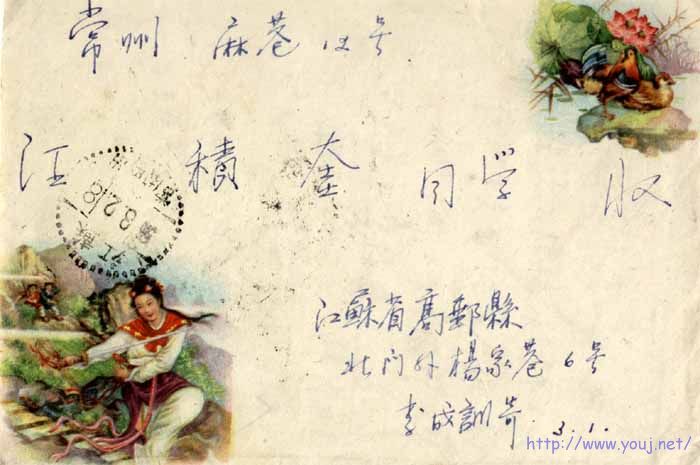 常州 麻巷12号
汪積奎同学 收
江蘇
江蘇省高郵縣
北门外楊家巷6号
李成訓寄 3.1.
http://www.youj.net/